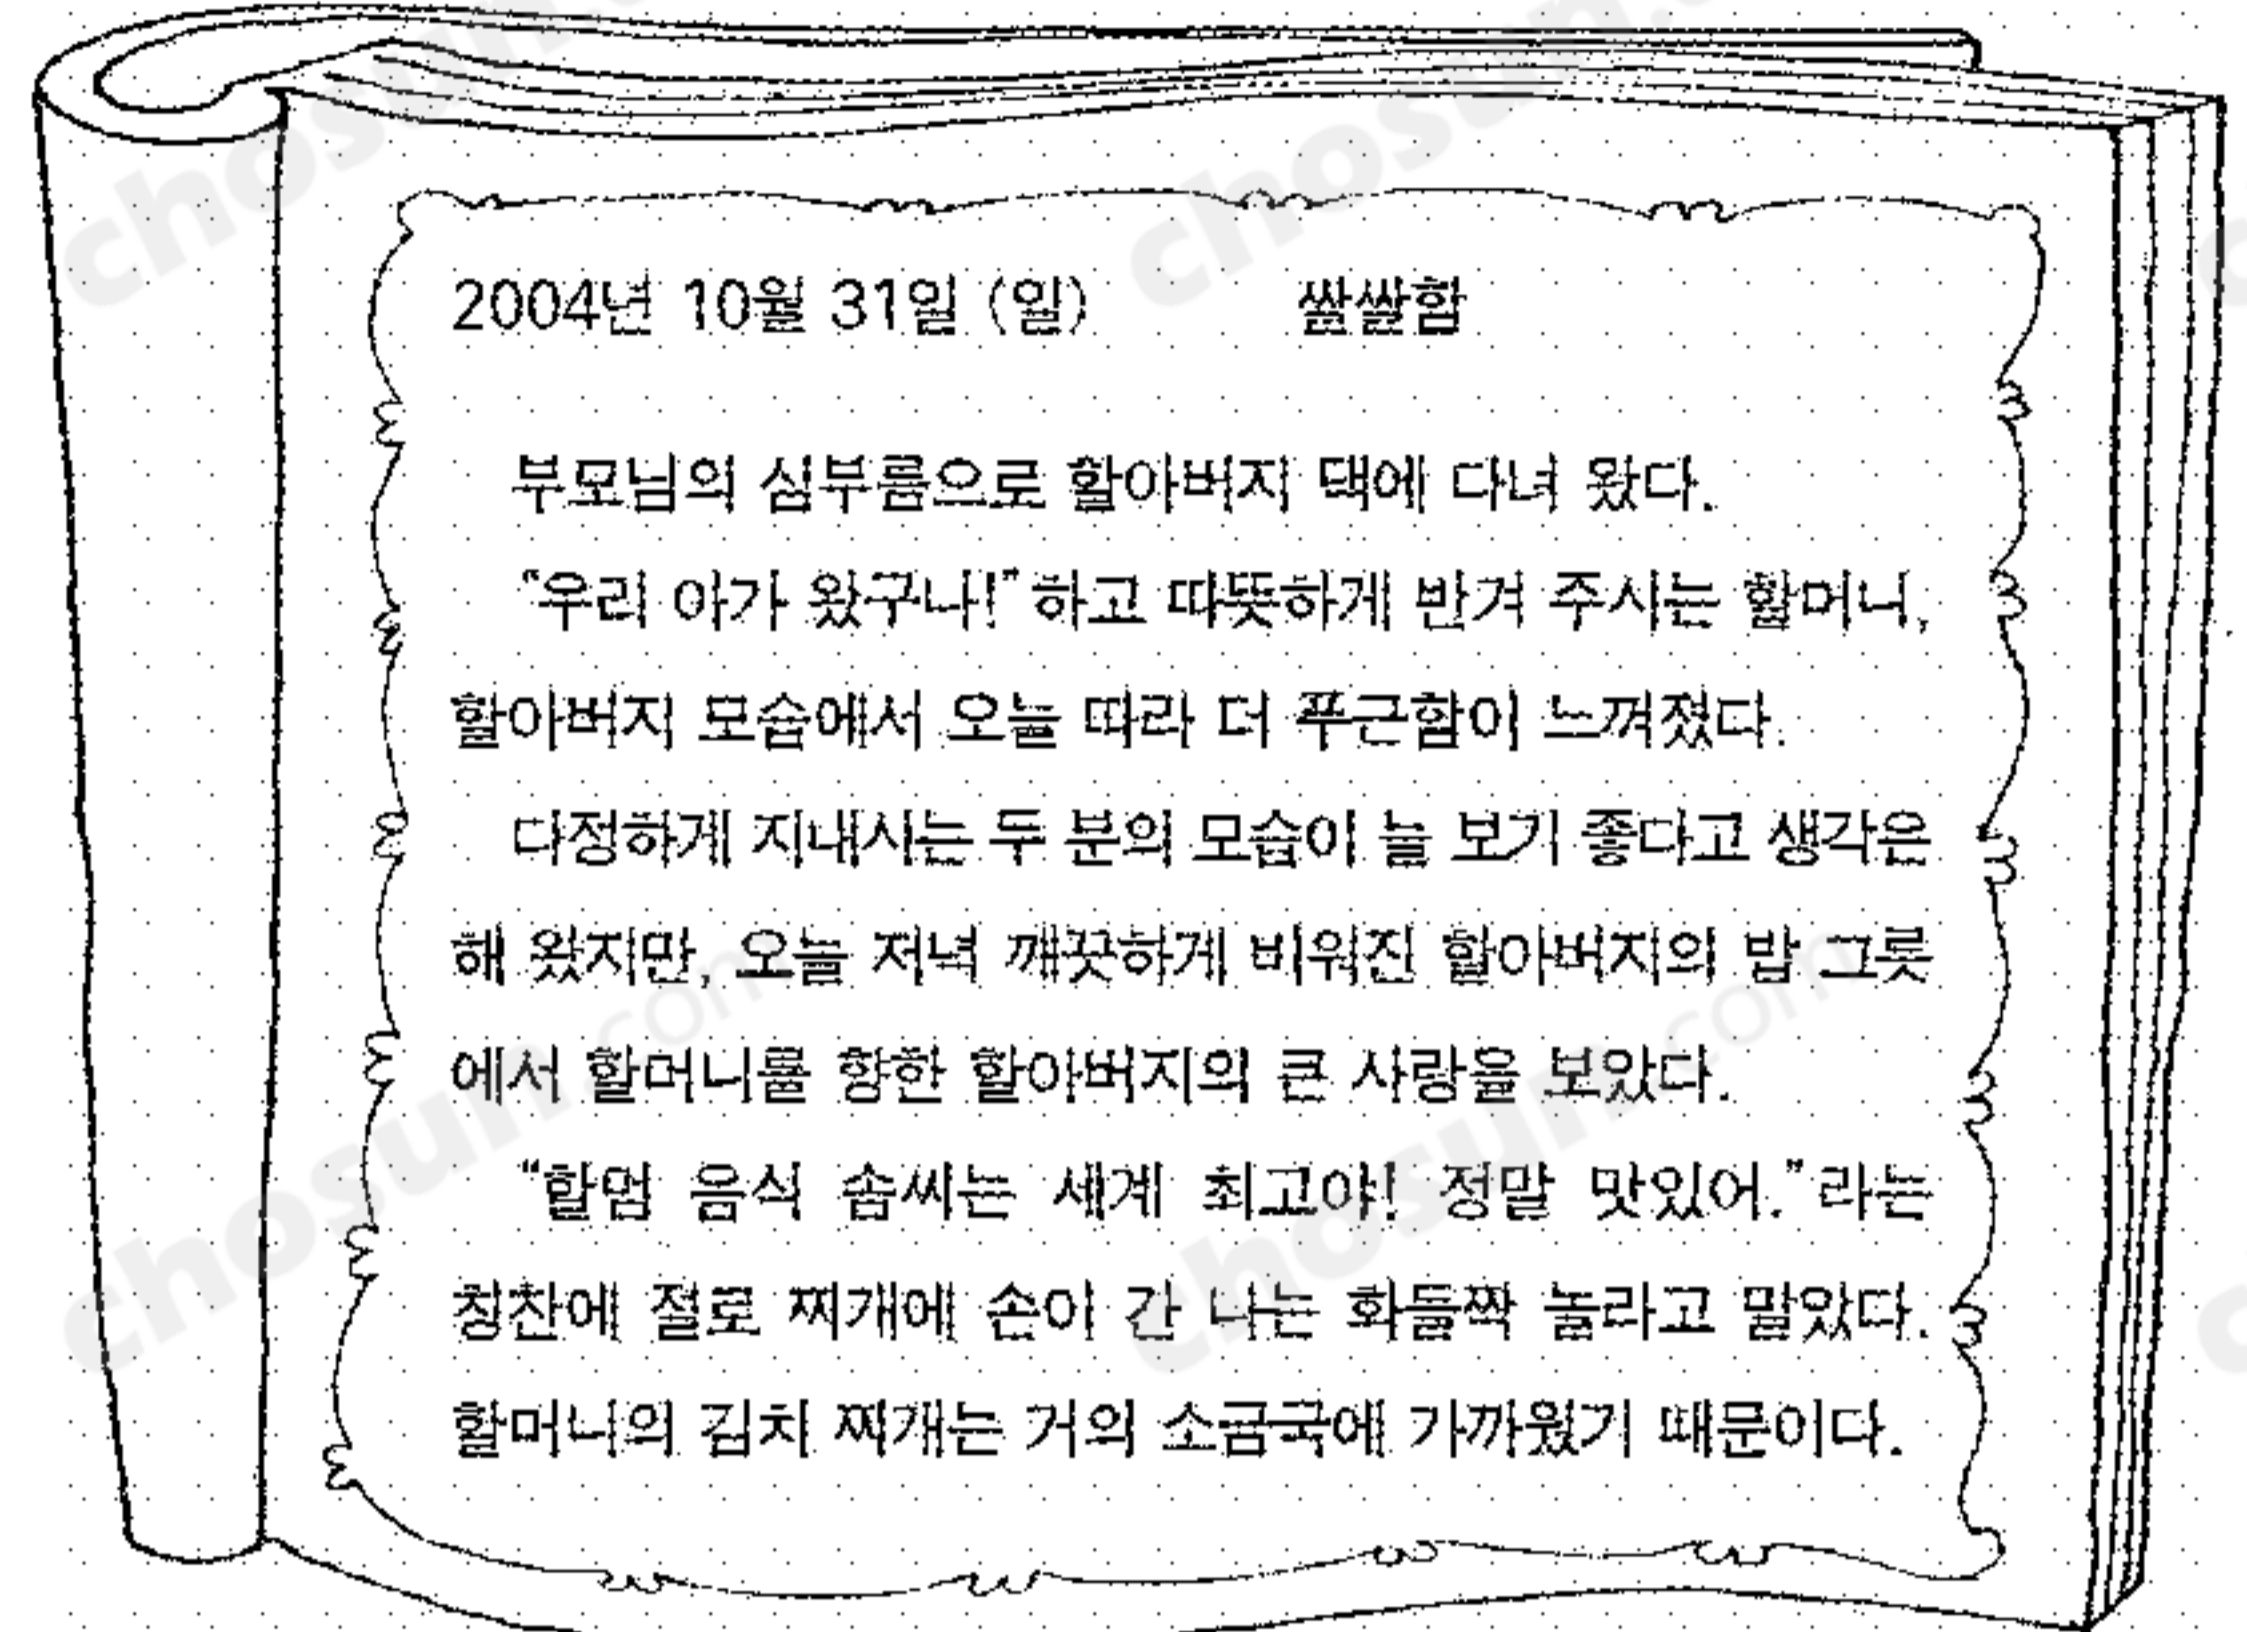 2004년 10월 31일 (일) 쌀쌀함
부모님의 심부름으로 할아버지 댁에 다녀 왔다.
“우리 아가 왔구나!”하고 따뜻하게 반겨 주시는 할머니,
할아버지 모습에서 오늘 따라 더 푸근함이 느껴졌다.
다정하게 지내시는 두 분의 모습이 늘 보기 좋다고 생각은
해 왔지만, 오늘 저녁 깨끗하게 비워진 할아버지의 밥 그릇
에서 할머니를 향한 할아버지의 큰 사랑을 보았다.
“할멈 음식 솜씨는 세계 최고야! 정말 맛있어.”라는
칭찬에 절로 찌개에 손이 간 나는 화들짝 놀라고 말았다.
할머니의 김치 찌개는 거의 소금국에 가까웠기 때문이다.
chosun.com
chosun.com
chosun.com
chosun.com